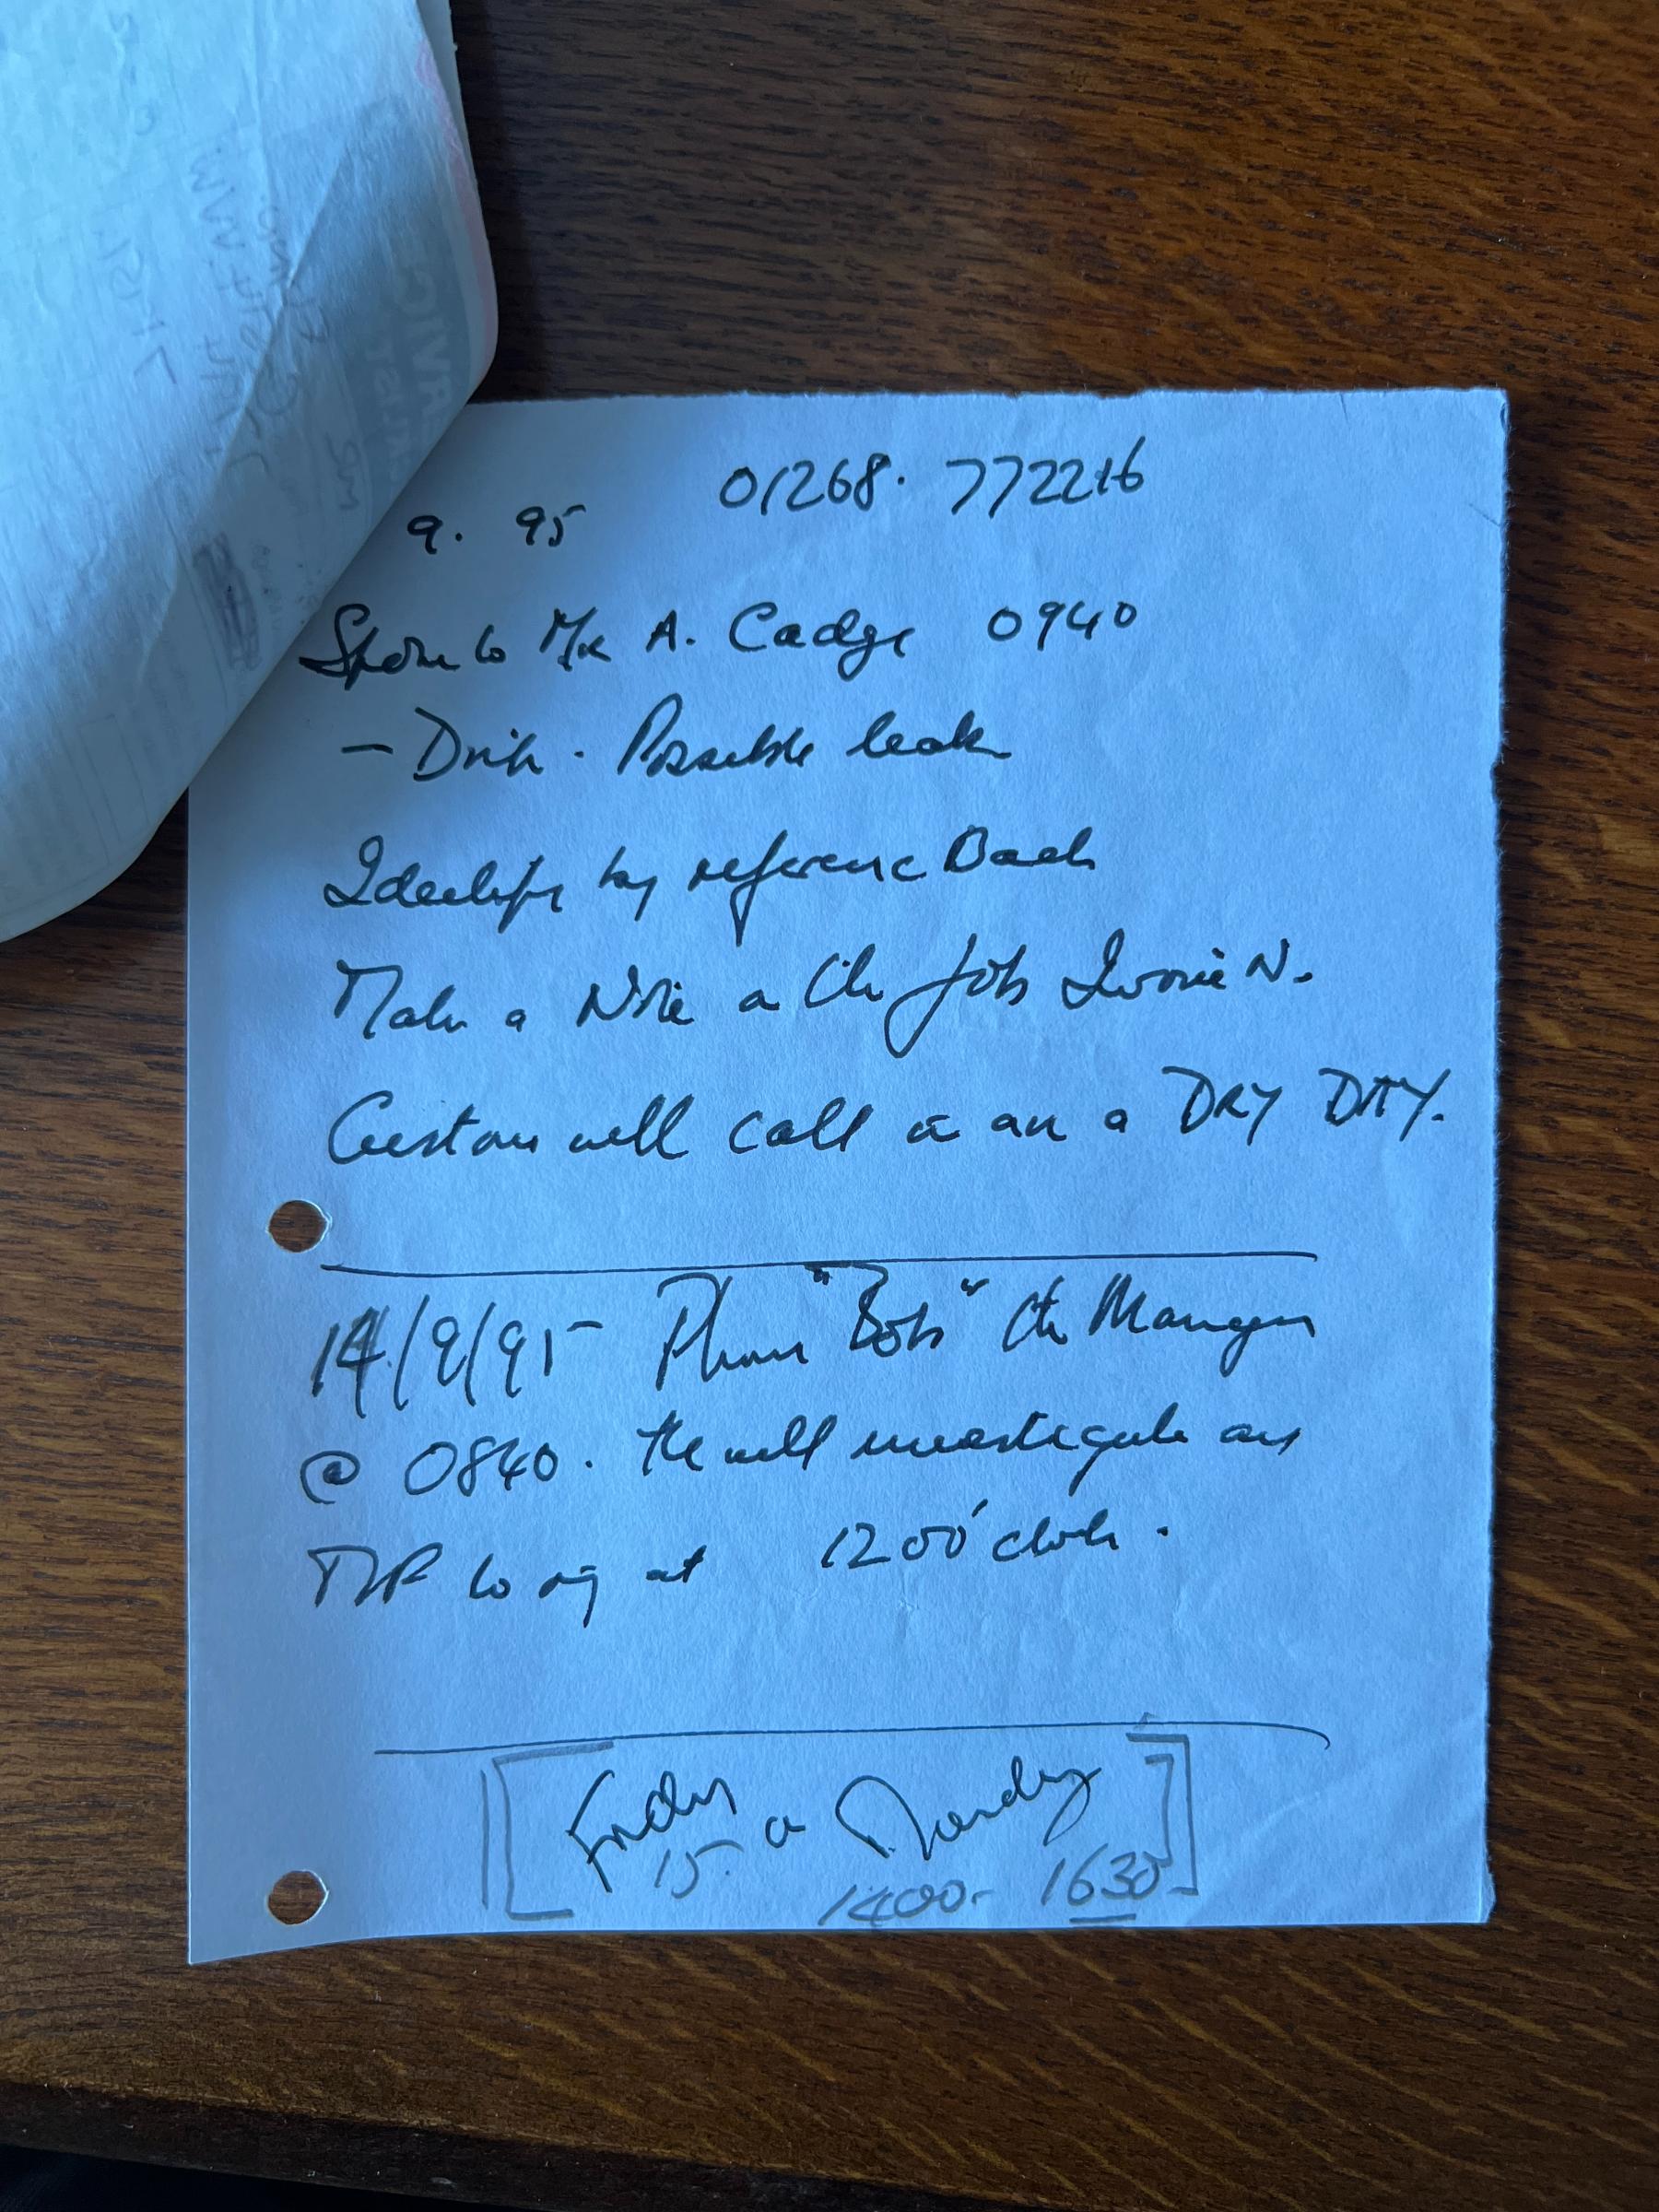 01268. 772216
9. 95
Spoke to Mr A. Cadge 0940
- Drip. Possible leak
Identify by reference Back
Make a Note on the Job Invoice N.
Customer will call in on a DRY DAY.
14/9/95 Phone "Bob" the Manager
@ 0840. He will investigate and
to ring at 1200'clock.
Friday or Monday
15. 1400- 1630